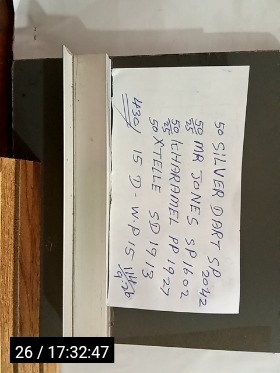 50 SILVER DART SP 2042
50 MR JONES SP 1602
50 KHARAMEL PP 1927
50 XTELLE SD 1913
15 D-W.P 15
430/
26 / 17:32:47